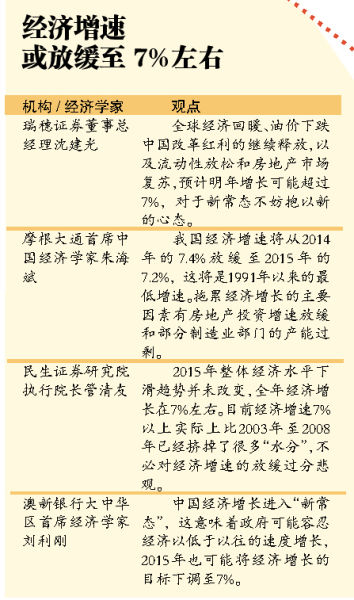 经济增速
或放缓至 7%左右
机构/经济学家
观点
瑞穗证券董事总
经理沈建光
全球经济回暖、油价下跌
中国改革红利的继续释放,以
及流动性放松和房地产市场
复苏,预计明年增长可能超过
7%, 对于新常态不妨抱以新
的心态。
摩根大通首席中
国经济学家朱海
斌
我国经济增速将从2014
年的7.4%放缓至2015年的
7.2%, 这将是1991年以来的最
低增速。拖累经济增长的主要
因素有房地产投资增速放缓
和部分制造业部门的产能过
剩。
民生证券研究院
执行院长管清友
2015年整体经济水平下
滑趋势并未改变,全年经济增
长在7%左右。目前经济增速7%
以上实际上比2003年至2008
年已经挤掉了很多“水分”,不
必对经济增速的放缓过分悲
观。
澳新银行大中华
区首席经济学家
刘利刚
中国经济增长进入“新常
态”, 这意味着政府可能容忍
经济以低于以往的速度增长,
2015年也可能将经济增长的
目标下调至7%。